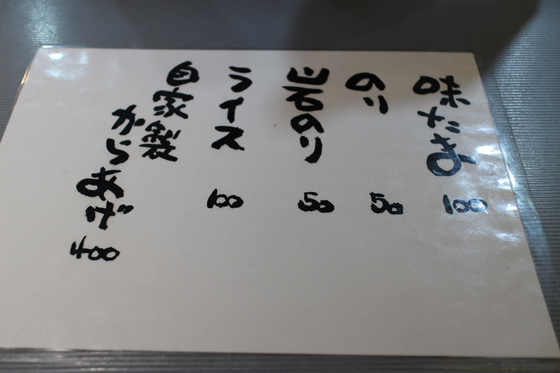 味だま 100
のり 50
岩のり 50
ライス 100
自家製
からあげ 400